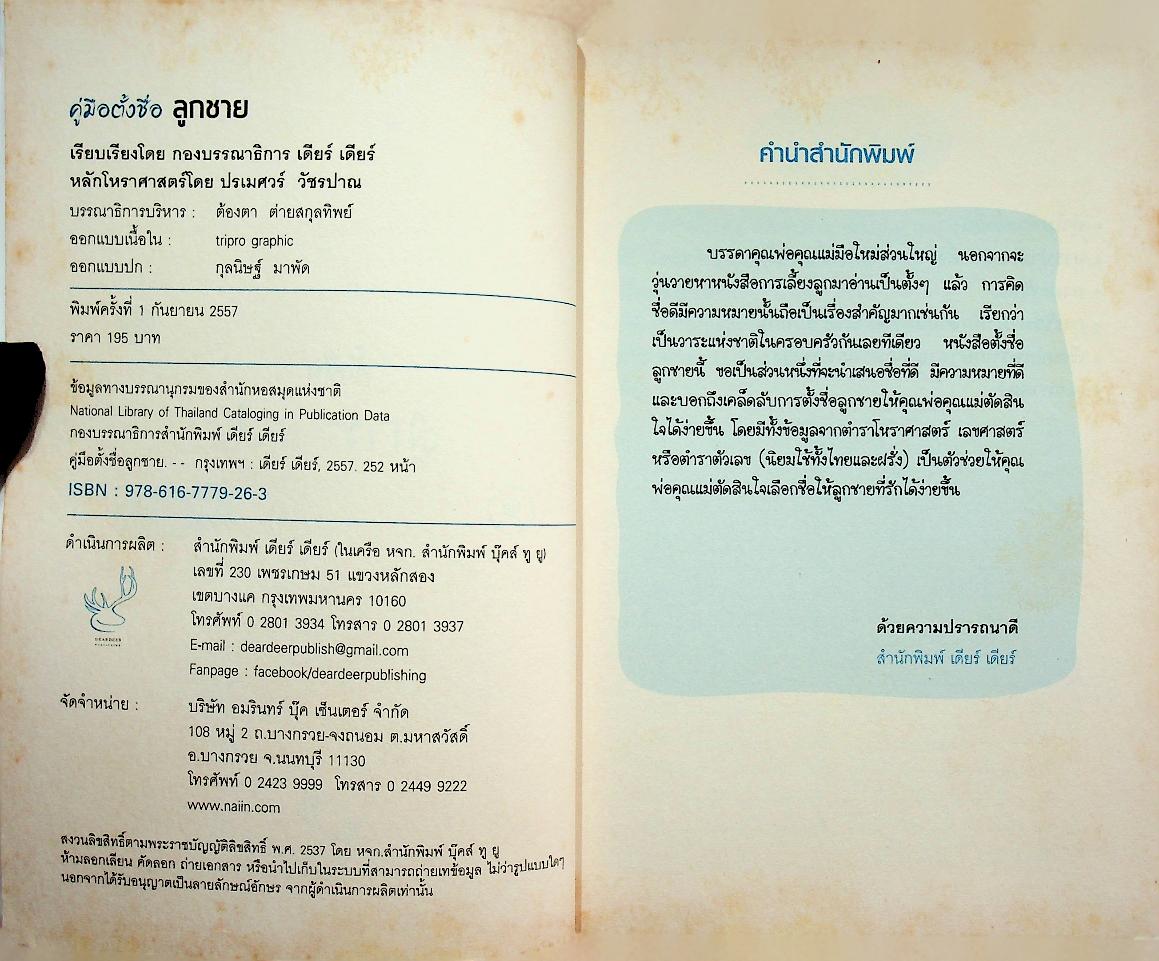 คู่มือตั้งชื่อ ลูกชาย
เรียบเรียงโดย กองบรรณาธิการ เดียร์ เดียร์
หลักโหราศาสตร์โดย ปรเมศวร์ วัชรปาณ
บรรณาธิการบริหาร : ต้องตา ต่ายสกุลทิพย์
ออกแบบเนื้อใน : tripro graphic
ออกแบบปก : กุลนิษฐ์ มาพัด
พิมพ์ครั้งที่ 1 กันยายน 2557
ราคา 195 บาท
ข้อมูลทางบรรณานุกรมของสำนักหอสมุดแห่งชาติ
National Library of Thailand Cataloging in Publication Data
กองบรรณาธิการสำนักพิมพ์ เดียร์ เดียร์
คู่มือตั้งชื่อลูกชาย. -- กรุงเทพฯ : เดียร์ เดียร์, 2557. 252 หน้า
ISBN : 978-616-7779-26-3
ดำเนินการผลิต : สำนักพิมพ์ เดียร์ เดียร์ (ในเครือ หจก. สำนักพิมพ์ บุ๊คส์ ทู ยู)
เลขที่ 230 เพชรเกษม 51 แขวงหลักสอง
เขตบางแค กรุงเทพมหานคร 10160
โทรศัพท์ 0 2801 3934 โทรสาร 0 2801 3937
E-mail : deardeerpublish@gmail.com
Fanpage : facebook/deardeerpublishing
DEARDEER
จัดจำหน่าย : บริษัท อมรินทร์ บุ๊ค เซ็นเตอร์ จำกัด
108 หมู่ 2 ถ.บางกรวย-จงถนอม ต.มหาสวัสดิ์
อ.บางกรวย จ.นนทบุรี 11130
โทรศัพท์ 0 2423 9999 โทรสาร 0 2449 9222
www.naiin.com
สงวนลิขสิทธิ์ตามพระราชบัญญัติลิขสิทธิ์ พ.ศ. 2537 โดย หจก.สำนักพิมพ์ บุ๊คส์ ทู ยู
ห้ามลอกเลียน คัดลอก ถ่ายเอกสาร หรือนำไปเก็บในระบบที่สามารถถ่ายเทข้อมูล ไม่ว่ารูปแบบใดๆ
นอกจากได้รับอนุญาตเป็นลายลักษณ์อักษร จากผู้ดำเนินการผลิตเท่านั้น
คำนำสำนักพิมพ์
บรรดาคุณพ่อคุณแม่มือใหม่ส่วนใหญ่ นอกจากจะ
วุ่นวายหาหนังสือการเลี้ยงลูกมาอ่านเป็นตั้งๆ แล้ว การคิด
ชื่อดีมีความหมายนั้นถือเป็นเรื่องสำคัญมากเช่นกัน เรียกว่า
เป็นวาระแห่งชาติในครอบครัวกันเลยทีเดียว หนังสือตั้งชื่อ
ลูกชายนี้ ขอเป็นส่วนหนึ่งที่จะนำเสนอชื่อที่ดี มีความหมายที่ดี
และบอกถึงเคล็ดลับการตั้งชื่อลูกชายให้คุณพ่อคุณแม่ตัดสิน
ใจได้ง่ายขึ้น โดยมีทั้งข้อมูลจากตำราโหราศาสตร์ เลขศาสตร์
หรือตำราตัวเลข (นิยมใช้ทั้งไทยและฝรั่ง) เป็นตัวช่วยให้คุณ
พ่อคุณแม่ตัดสินใจเลือกชื่อให้ลูกชายที่รักได้ง่ายขึ้น
ด้วยความปรารถนาดี
สำนักพิมพ์ เดียร์ เดียร์